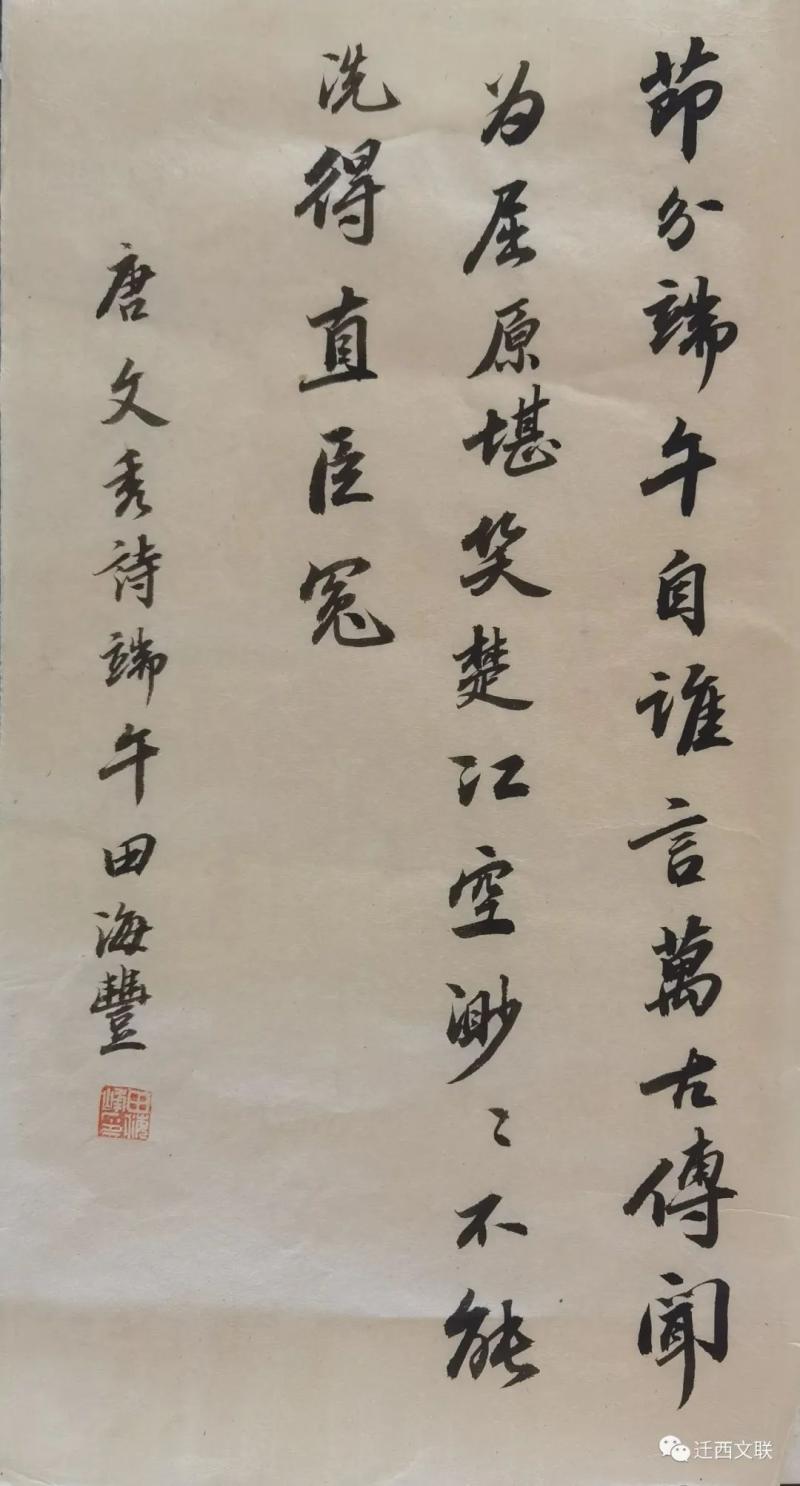 節分端午自誰言萬古傳聞
为屈原堪笑楚江空渺〻不能
洗得直臣冤
唐文秀詩端午田海豐
迁西文联